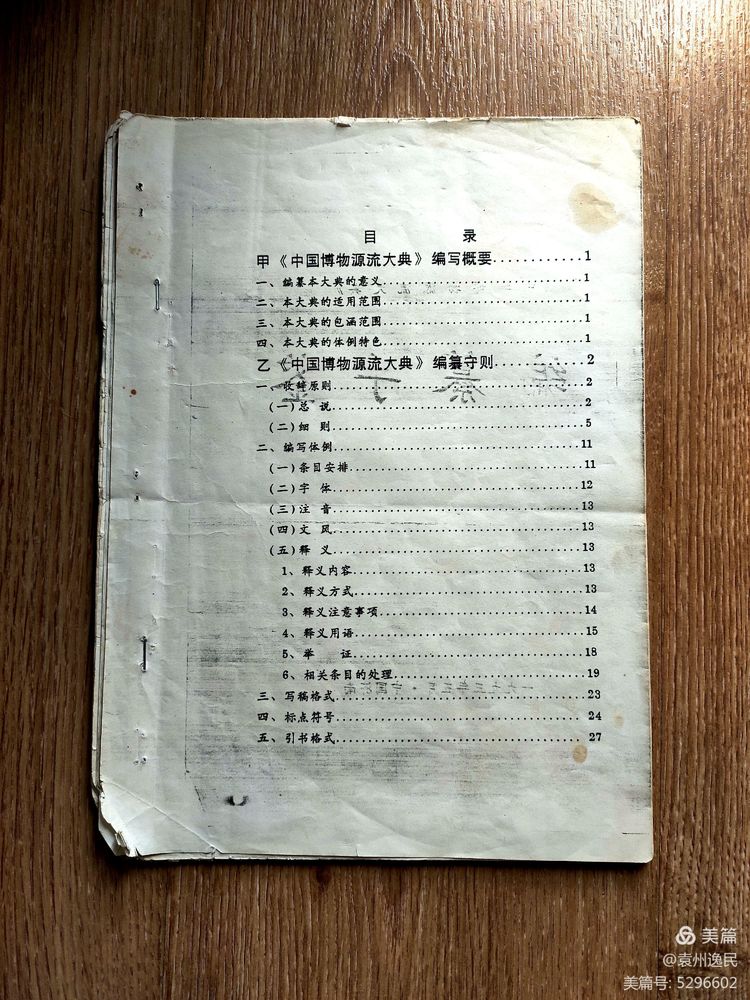 目 录
甲《中国博物源流大典》编写概要............1
一、编纂本大典的意义....................1
二、本大典的适用范围....................1
三、本大典的包涵范围....................1
四、本大典的体例特色....................1
乙《中国博物源流大典》编纂守则............2
一、收辞原则....................2
(一)总 说....................2
(二)细 则....................5
二、编写体例....................11
(一)条目安排....................11
(二)字 体....................12
(三)注 音....................13
(四)文 风....................13
(五)释 义....................13
1、释义内容....................13
2、释义方式....................13
3、释义注意事项....................14
4、释义用语....................15
5、举 证....................18
6、相关条目的处理....................19
三、写稿格式....................23
四、标点符号....................24
五、引书格式....................27
美篇
@袁州逸民
美篇号: 5296602